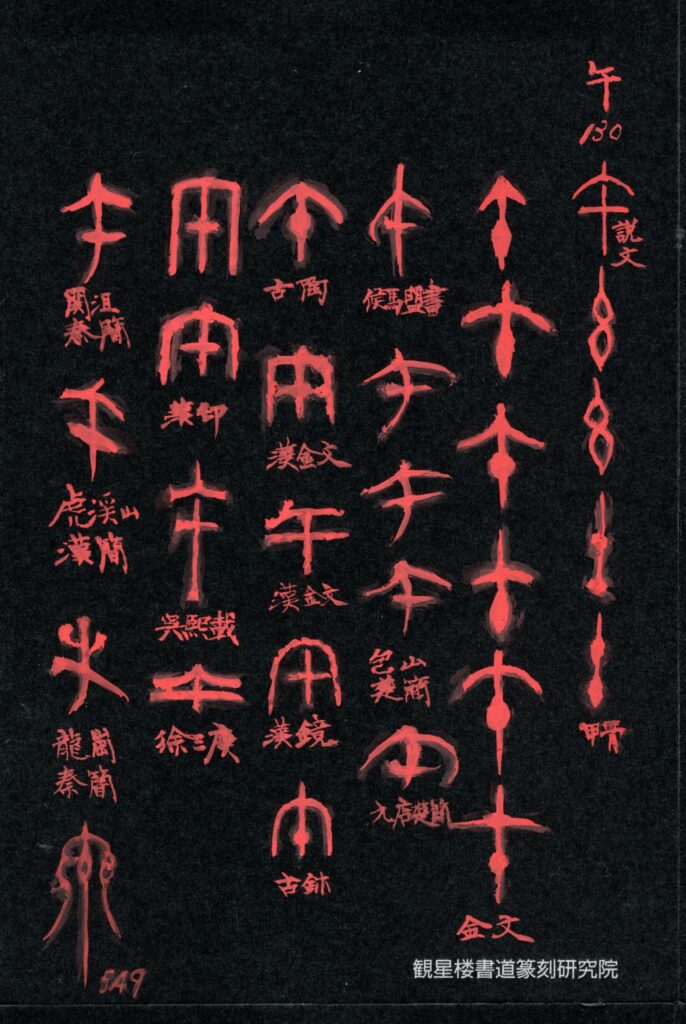 午
130
説文
甲骨
金文
侯馬盟書
包山
楚簡
九店楚簡
古陶
漢金文
漢金文
漢鏡
古鉨
漢印
吳熙載
徐三庚
関沮
秦簡
虎渓山
漢簡
龍崗
秦簡
849
観星楼書道篆刻研究院